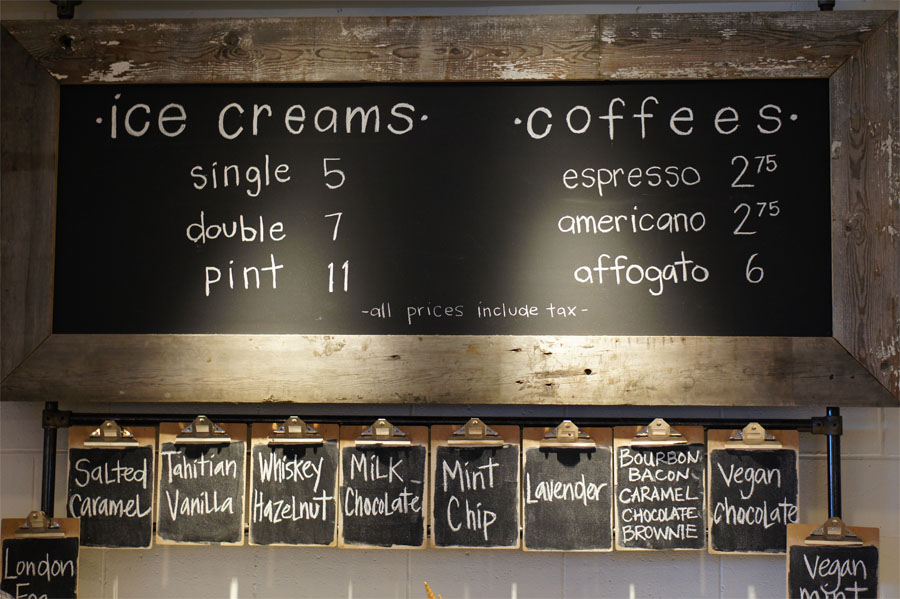 ·ice creams·
single 5
double 7
pint 11
·coffees·
espresso 2 75
americano 2 75
affogato 6
-all prices include tax-
Salted
Caramel
Tahitian
Vanilla
Whiskey
Hazelnut
Milk
Chocolate
Mint
Chip
Lavender
BOURBON
BACON
CARAMEL
CHOCOLATE
BROWNIE
Vegan
chocolate
London
Fog
Vegan
mint